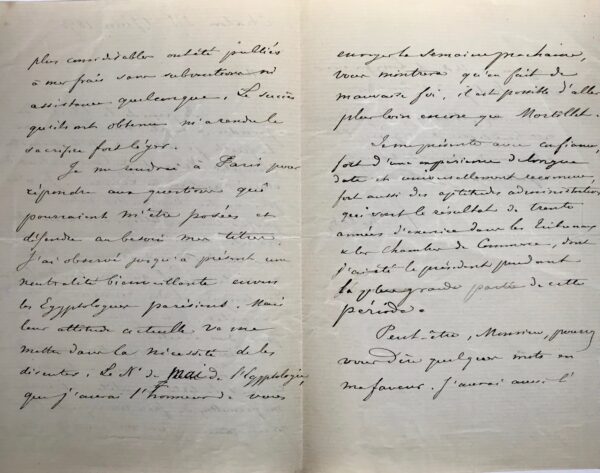 plus considérables ont été publiés
à mes frais sans subventions ni
assistance quelconque. Le succès
qu'ils ont obtenu m'a rendu le
sacrifice fort léger.
Je me rendrai à Paris pour
répondre aux questions qui
pourraient m'être posées et
défendre au besoin mes titres.
J'ai observé jusqu'à présent une
neutralité bienveillante envers
les Egyptologues parisiens. Mais
leur attitude actuelle va me
mettre dans la nécessité de les
discuter. Le No de mai de l'Egyptologie,
que j'aurai l'honneur de vous
envoyer la semaine prochaine,
vous montrera qu'en fait de
mauvaise foi, il est possible d'aller
plus loin encore que Mortillet.
Je me présente avec confiance,
fort d'une expérience de longue
date et universellement reconnue,
fort aussi des aptitudes administratives
qui sont le résultat de trente
années d'exercice dans les Tribunaux
& les Chambres de Commerce, dont
j'ai été le président pendant
la plus grande partie de cette
période.
Peut-être, Monsieur, pourrez
vous dire quelques mots en
ma faveur. J'aurai aussi l'